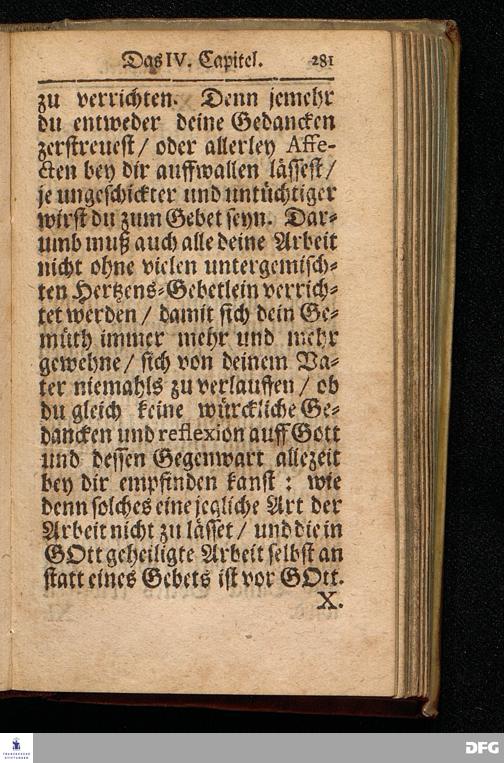 Das IV. Capitel. 281
zu verrichten. Denn jemehr
du entweder deine Gedancken
zerstreuest / oder allerley Affe-
cten bey dir auffwallen lässest /
je ungeschickter und untüchtiger
wirst du zum Gebet seyn. Dar-
umb muß auch alle deine Arbeit
nicht ohne vielen untergemisch-
ten Hertzens-Gebetlein verrich-
tet werden / damit sich dein Ge-
müth immer mehr und mehr
gewehne / sich von deinem Va-
ter niemahls zu verlauffen / ob
du gleich keine würckliche Ge-
dancken und reflexion auff Gott
und dessen Gegenwart allezeit
bey dir empfinden kanst : wie
denn solches eine jegliche Art der
Arbeit nicht zu lässet / und die in
GOtt geheiligte Arbeit selbst an
statt eines Gebets ist vor GOtt.
X.
FRANCKESCHE
STIFTUNGEN
DFG